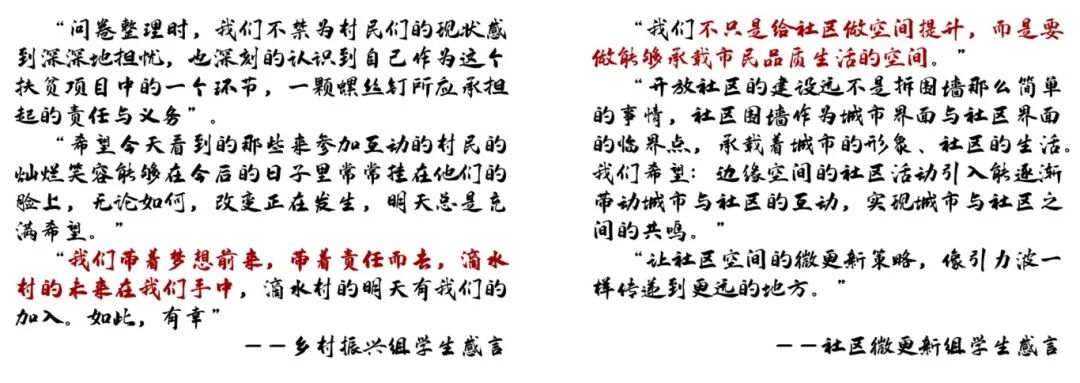 “问卷整理时，我们不禁为村民们的现状感
到深深地担忧，也深刻的认识到自己作为这个
扶贫项目中的一个环节，一颗螺丝钉所应承担
起的责任与义务”。
“希望今天看到的那些来参加互动的村民的
灿烂笑容能够在今后的日子里常常挂在他们的
脸上，无论如何，改变正在发生，明天总是充
满希望。”
“我们带着梦想前来，带着责任而去，滴水
村的未来在我们手中，滴水村的明天有我们的
加入。如此，有幸”
——乡村振兴组学生感言
“我们不只是给社区做空间提升，而是要
做能够承载市民品质生活的空间。”
“开放社区的建设远不是拆围墙那么简单
的事情，社区围墙作为城市界面与社区界面
的临界点，承载着城市的形象、社区的生活。
我们希望：边缘空间的社区活动引入能逐渐
带动城市与社区的互动，实现城市与社区之
间的共鸣。”
“让社区空间的微更新策略，像引力波一
样传递到更远的地方。”
——社区微更新组学生感言